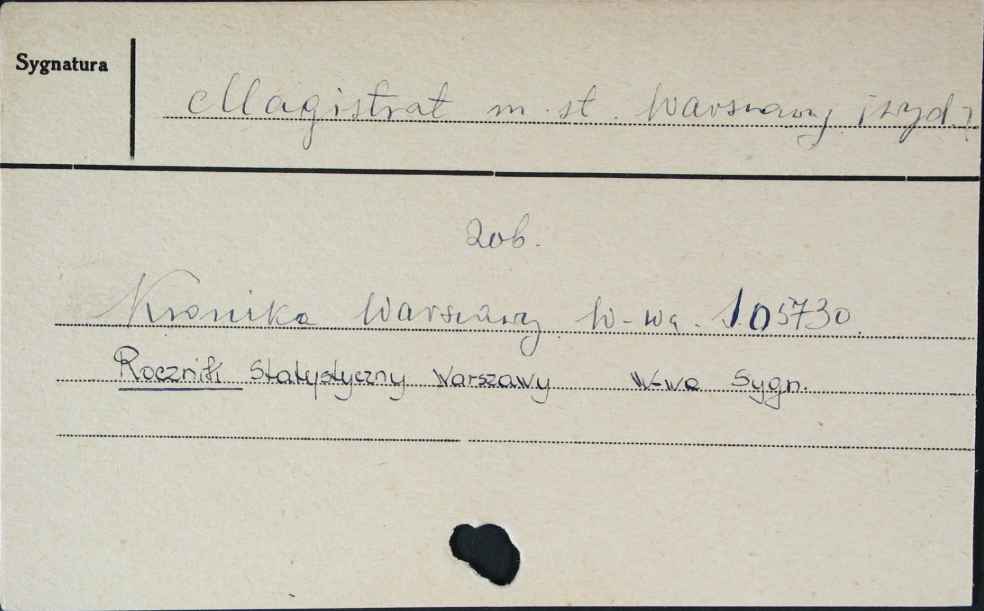 Sygnatura
Magistrat m. st. Warszawy [wyd.]
Zob.
Kronika Warszawy W-wa. 105730.
Rocznik Statystyczny Warszawy W-wa Sygn.